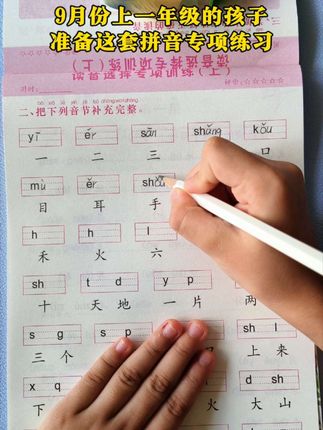 9月份上一年级的孩子
准备这套拼音专项练习
读音选择专项训练（上）
二、把下列音节补充完整。
yī ěr sān shàng kǒu
一 二 三 口
mù ěr shǒu
目 耳 手
h h l
禾 火 六
sh t d y p
十 天 地 一 片 两
s g s p sh l
三 个 上 来
x q d sh
下 火 大 山